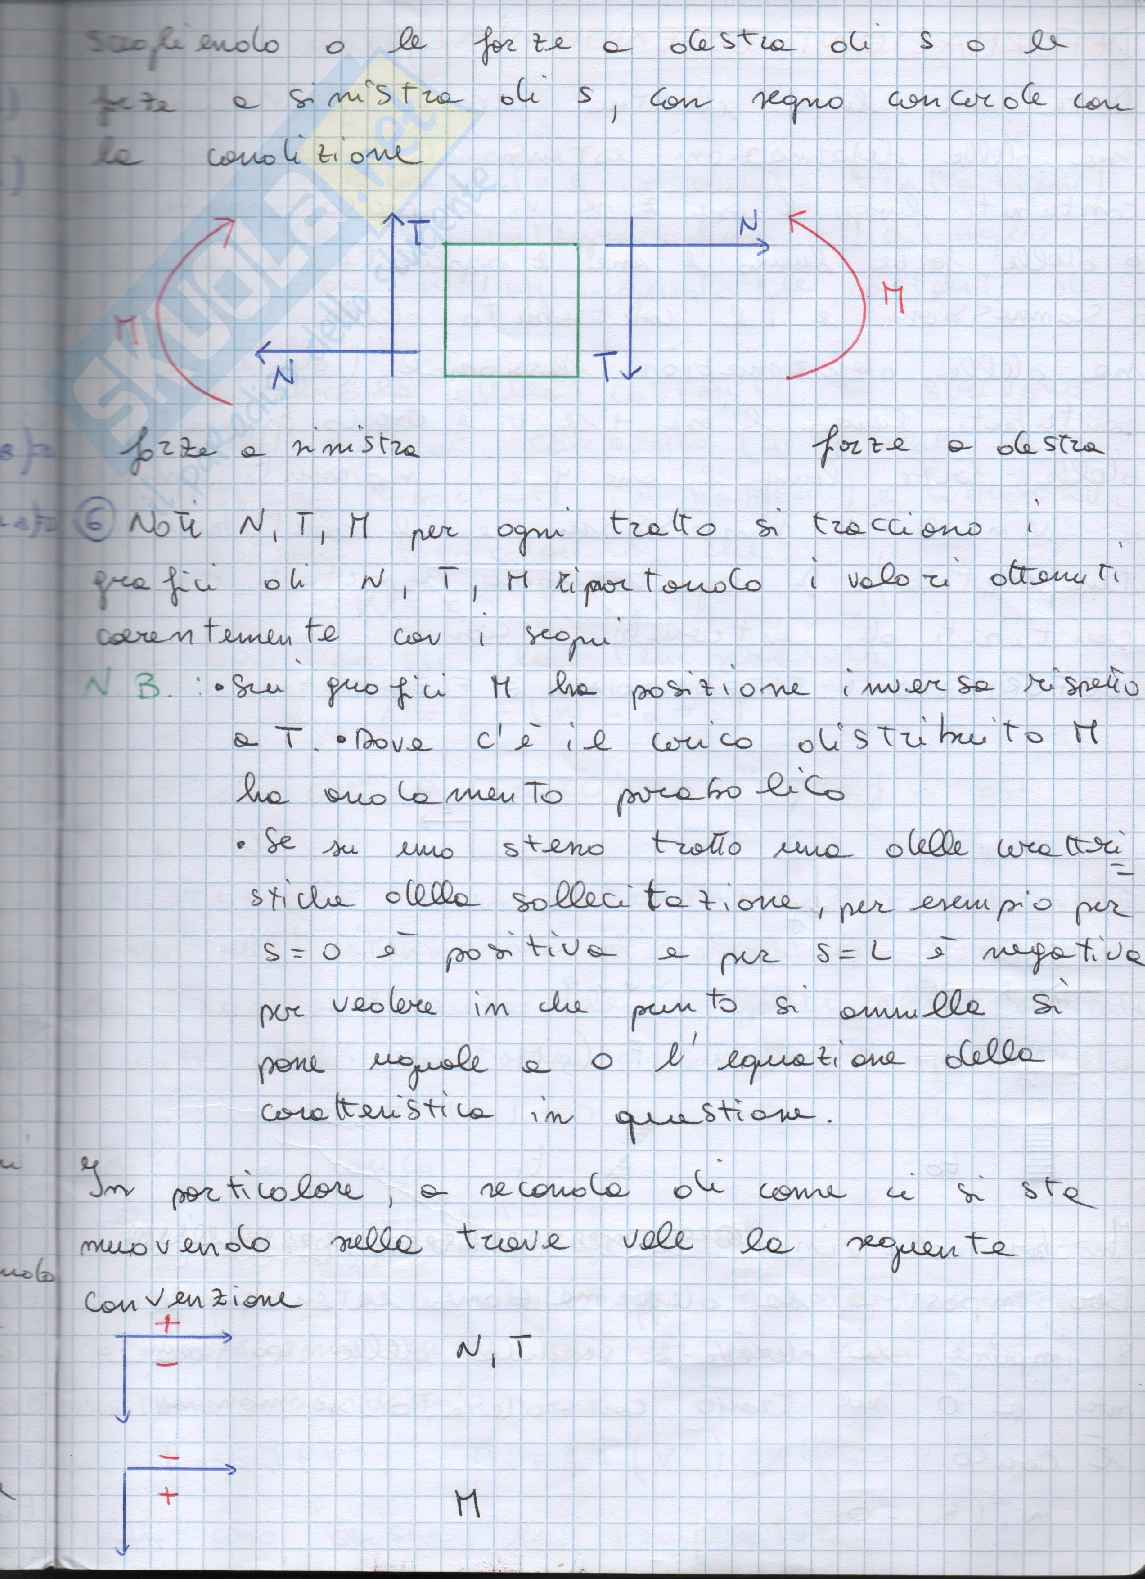 scegliendo o le forze a destra di s o le
forze a sinistra di s, con segno concorde con
la condizione
T
N
M
M
N
T
forze a sinistra
forze a destra
6 Noti N, T, M per ogni tratto si tracciano i
grafici di N, T, M riportando i valori ottenuti
coerentemente con i segni
NB. : • Sui grafici M ha posizione inversa rispetto
a T. • Dove c'è il carico distribuito M
ha andamento parabolico
• Se su uno stesso tratto una delle caratteri=
stiche della sollecitazione, per esempio per
s=0 è positiva e per s=L è negativa
per vedere in che punto si annulla si
pone uguale a 0 l'equazione della
caratteristica in questione.
In particolare, a seconda di come ci si sta
muovendo nella trave vale la seguente
convenzione
+
−
N, T
−
+
M
SKUOLA.net